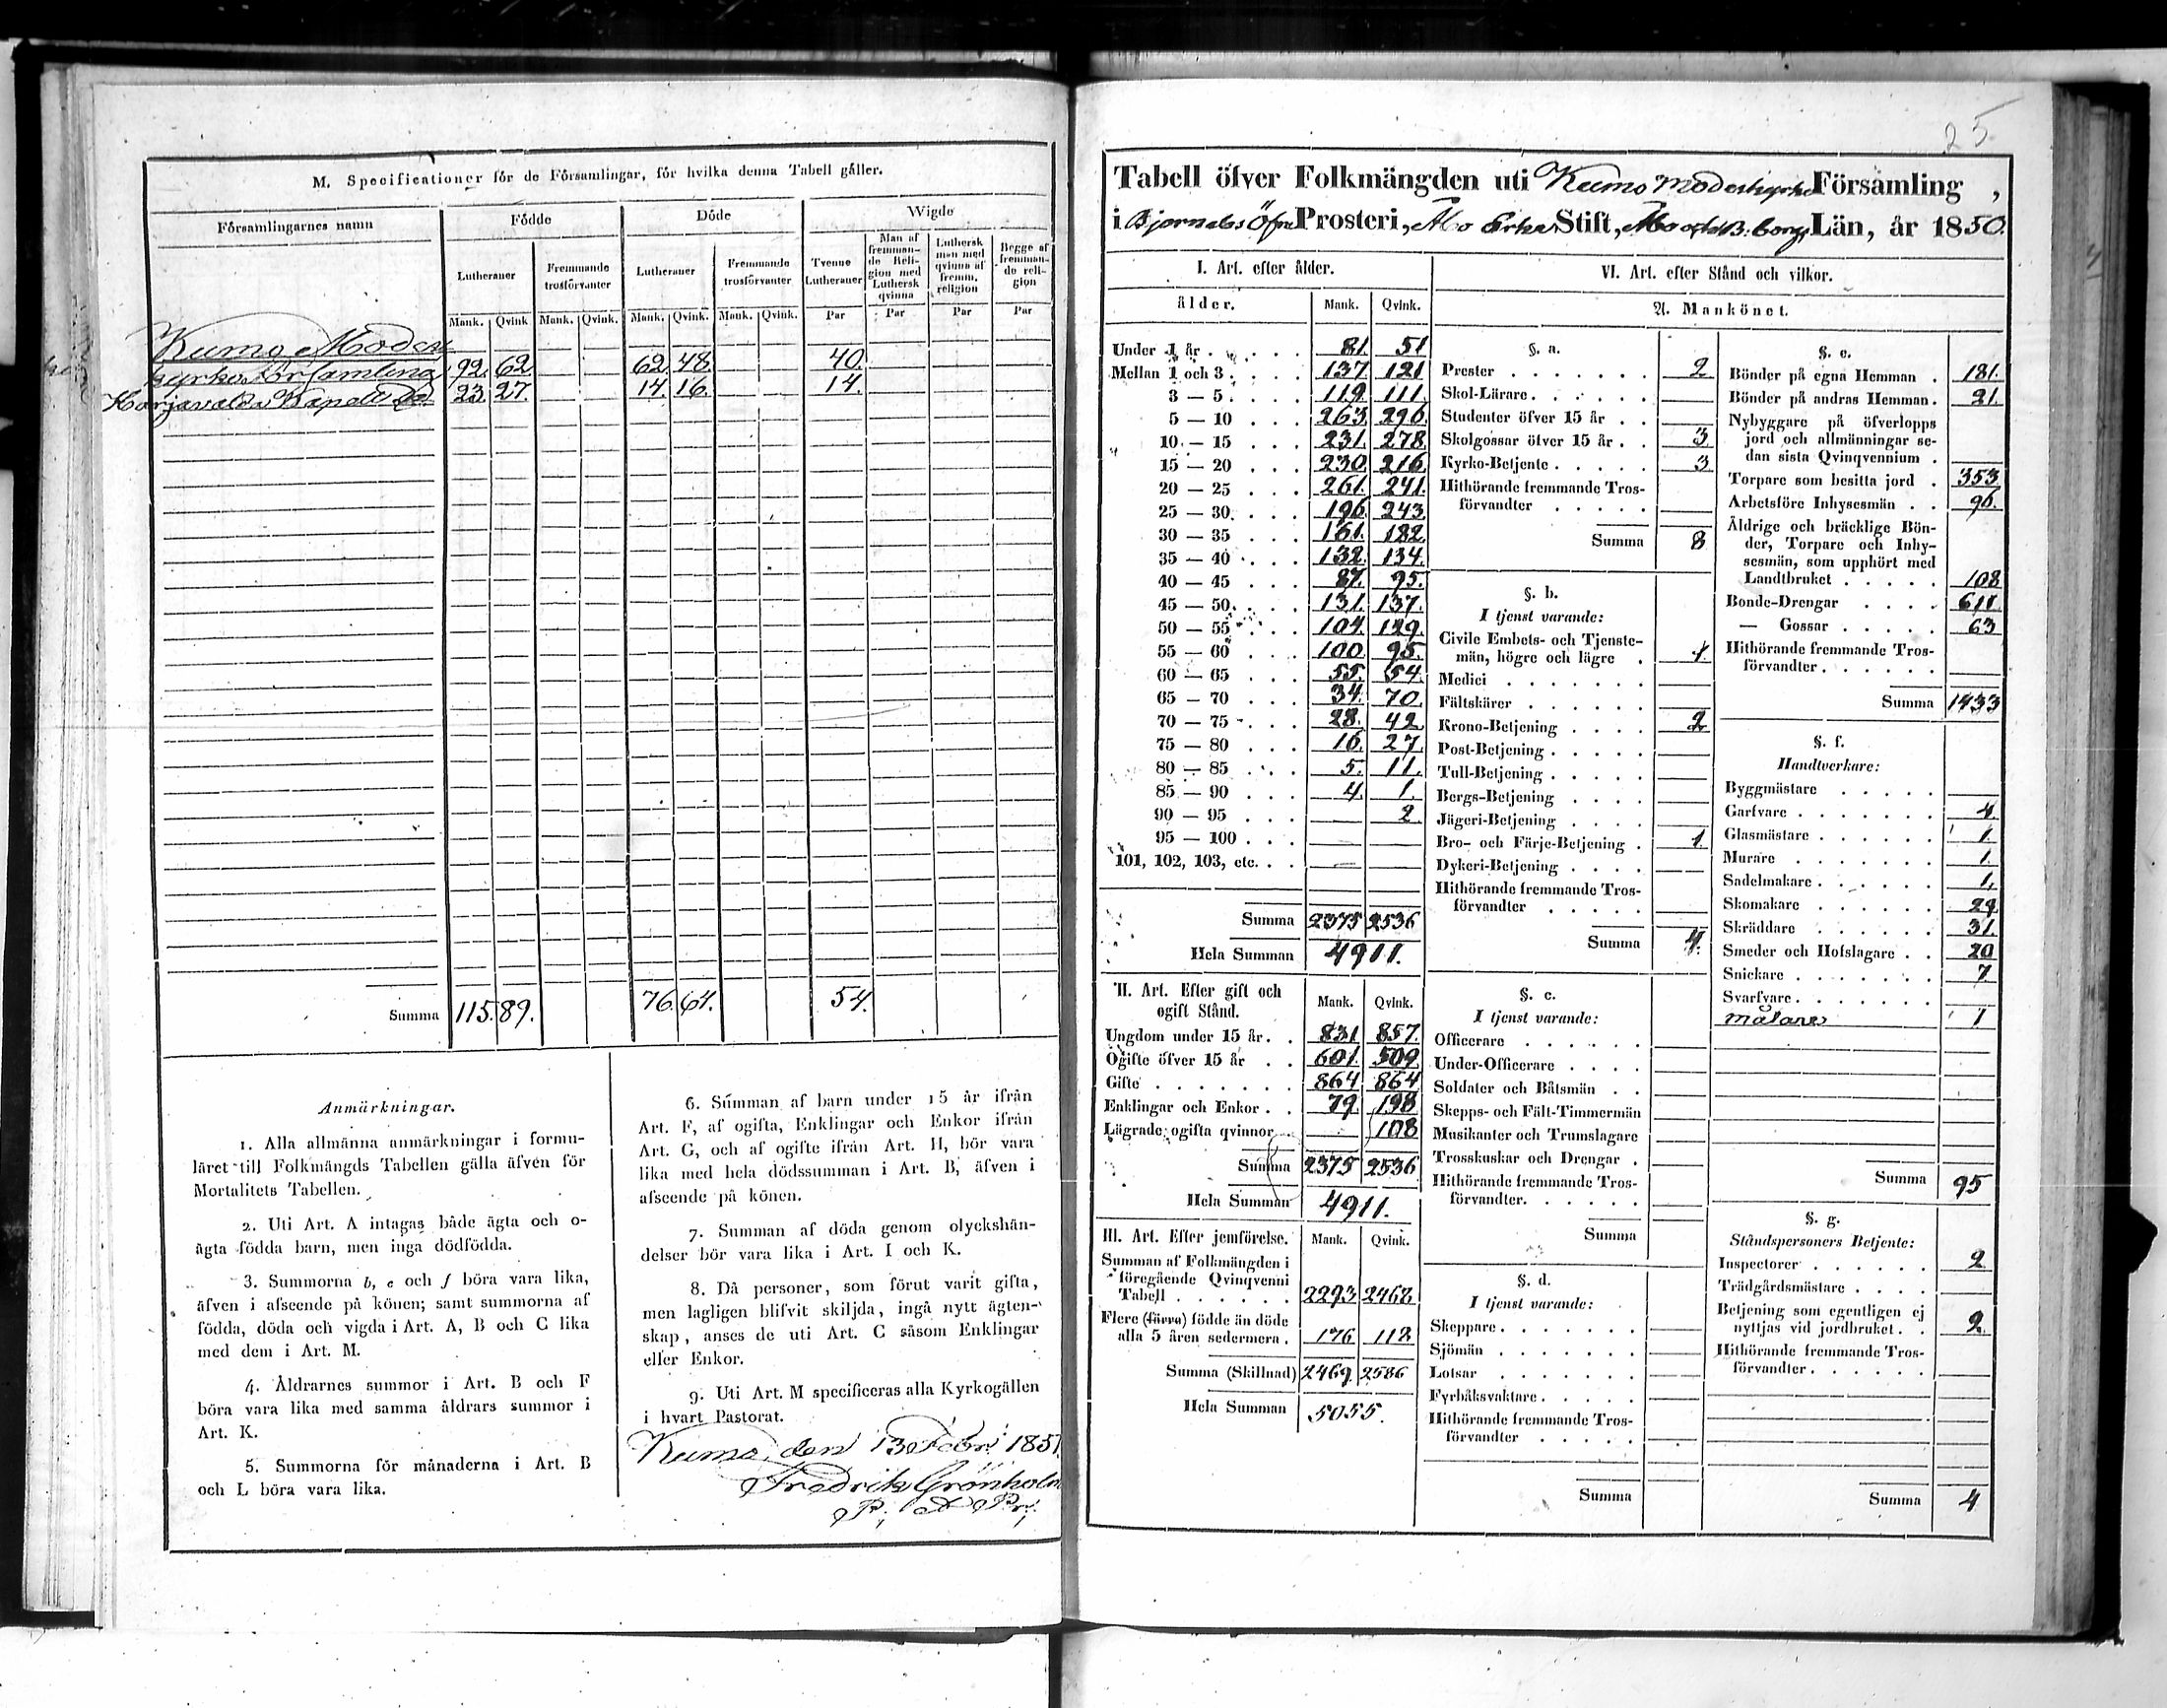 M. Specificationer för de Församlingar, för hvilka denna Tabell gäller.
Församlingarnes namn
Födde
Döde
Wigde
Lutheraner
Fremmande trosförvanter
Lutheraner
Fremmande trosförvanter
Tvenne Lutheraner
Man af fremmande Religion med Luthersk qvinna
Luthersk man med qvinna af fremm. religion
Begge af fremmande religion
Mank. Qvink Mank. Qvink. Mank. Qvink. Mank. Qvink. Par Par Par Par
Kumo Moder
kyrko Församling 92. 62 62 48. 40.
Harjavalda Kapell 23. 27. 14. 16. 14.
Summa 115. 89. 76 64. 54.
Anmärkningar.
1. Alla allmänna anmärkningar i formu-
läret till Folkmängds Tabellen gälla äfven för
Mortalitets Tabellen.
2. Uti Art. A intagas både ägta och o-
ägta födda barn, men inga dödfödda.
3. Summorna b, e och f böra vara lika,
äfven i afseende på könen; samt summorna af
födda, döda och vigda i Art. A, B och C lika
med dem i Art. M.
4. Åldrarnes summor i Art. B och F
böra vara lika med samma åldrars summor i
Art. K.
5. Summorna för månaderna i Art. B
och L böra vara lika.
6. Summan af barn under 15 år ifrån
Art. F, af ogifta, Enklingar och Enkor ifrån
Art. G, och af ogifte ifrån Art. H, bör vara
lika med hela dödssumman i Art. B, äfven i
afseende på könen.
7. Summan af döda genom olyckshän-
delser bör vara lika i Art. I och K.
8. Då personer, som förut varit gifta,
men lagligen blifvit skiljda, ingå nytt ägten-
skap, anses de uti Art. C såsom Enklingar
eller Enkor.
9. Uti Art. M specificeras alla Kyrkogällen
i hvart Pastorat.
Kumo, den 13 Febr: 1851
Fredrik Grönholm
25
Tabell öfver Folkmängden uti Kumo Moderkyrko Församling,
i Bjerneborgs Öfre Prosteri, Åbo Erke Stift, Åbo och B:borgs Län, år 1850.
I. Art. efter ålder.
ålder. Mank. Qvink.
Under 1 år . . . . 81. 51
Mellan 1 och 3 . . . . 137. 121
3 — 5 . . . . 119. 111.
5 — 10 . . . 263. 296.
10 — 15 . . . 231. 278.
15 — 20 . . . 230. 216.
20 — 25 . . . 261. 241.
25 — 30 . . . 196. 243
30 — 35 . . . 161. 182
35 — 40 . . . 132. 134.
40 — 45 . . . 87. 95.
45 — 50 . . . 131. 137.
50 — 55 . . . 104. 129.
55 — 60 . . . 100. 95.
60 — 65 . . . 55. 54.
65 — 70 . . . 34. 70.
70 — 75 . . . 28. 42.
75 — 80 . . . 16. 27.
80 — 85 . . . 5. 11.
85 — 90 . . . 4. 1.
90 — 95 . . . 2
95 — 100 . . .
101, 102, 103, etc. . .
Summa 2375 2536
Hela Summan 4911.
II. Art. Efter gift och ogift Stånd. Mank. Qvink.
Ungdom under 15 år . . 831 857.
Ogifte öfver 15 år . . 601. 509
Gifte . . . . . . . 864 864
Enklingar och Enkor . . 79. 198
Lägrade ogifta qvinnor 108
Summa 2375 2536
Hela Summan 4911.
III. Art. Efter jemförelse. Mank. Qvink.
Summan af Folkmängden i
föregående Qvinqvenni
Tabell . . . . . . 2293 2468
Flere (färre) födde än döde
alla 5 åren sedermera . 176 118
Summa (Skillnad) 2469. 2586
Hela Summan 5055.
VI. Art. efter Stånd och vilkor.
A. Mankönet.
§. a.
Prester . . . . . . . 2
Skol-Lärare . . . . . .
Studenter öfver 15 år . .
Skolgossar öfver 15 år . . 3
Kyrko-Betjente . . . . . 3
Hithörande fremmande Tros-
förvandter . . . . .
Summa 8
§. b.
I tjenst varande:
Civile Embets- och Tjenste-
män, högre och lägre . 1.
Medici . . . . . . .
Fältskärer . . . . . .
Krono-Betjening . . . . 2
Post-Betjening . . . . .
Tull-Betjening . . . . .
Bergs-Betjening . . . .
Jägeri-Betjening . . . .
Bro- och Färje-Betjening . 1.
Dykeri-Betjening . . . .
Hithörande fremmande Tros-
förvandter . . . . .
Summa 4.
§. c.
I tjenst varande:
Officerare . . . . . .
Under-Officerare . . . .
Soldater och Båtsmän . .
Skepps- och Fält-Timmermän
Musikanter och Trumslagare
Trosskuskar och Drengar .
Hithörande fremmande Tros-
förvandter . . . . . .
Summa
§. d.
I tjenst varande:
Skeppare . . . . . . .
Sjömän . . . . . . .
Lotsar . . . . . . .
Fyrbåksvaktare . . . . .
Hithörande fremmande Tros-
förvandter . . . . .
Summa
§. e.
Bönder på egna Hemman . 181.
Bönder på andras Hemman . 21.
Nybyggare på öfverlopps
jord och allmänningar se-
dan sista Qvinqvennium .
Torpare som besitta jord . 353
Arbetsföre Inhysesmän . . 96.
Åldrige och bräcklige Bön-
der, Torpare och Inhy-
sesmän, som upphört med
Landtbruket . . . . . 108
Bonde-Drengar . . . . 611
— Gossar . . . . . 63
Hithörande fremmande Tros-
förvandter . . . . . .
Summa 1433
§. f.
Handtverkare:
Byggmästare . . . . .
Garfvare . . . . . . . 4.
Glasmästare . . . . . . 1
Murare . . . . . . . 1.
Sadelmakare . . . . . . 1.
Skomakare . . . . . . 29
Skräddare . . . . . . 31.
Smeder och Hofslagare . . 20
Snickare . . . . . . . 7
Svarfvare . . . . . . .
målare 1
Summa 95
§. g.
Ståndspersoners Betjente:
Inspectorer . . . . . . 2
Trädgårdsmästare . . . .
Betjening som egentligen ej
nyttjas vid jordbruket . . 2
Hithörande fremmande Tros-
förvandter . . . . . .
Summa 4